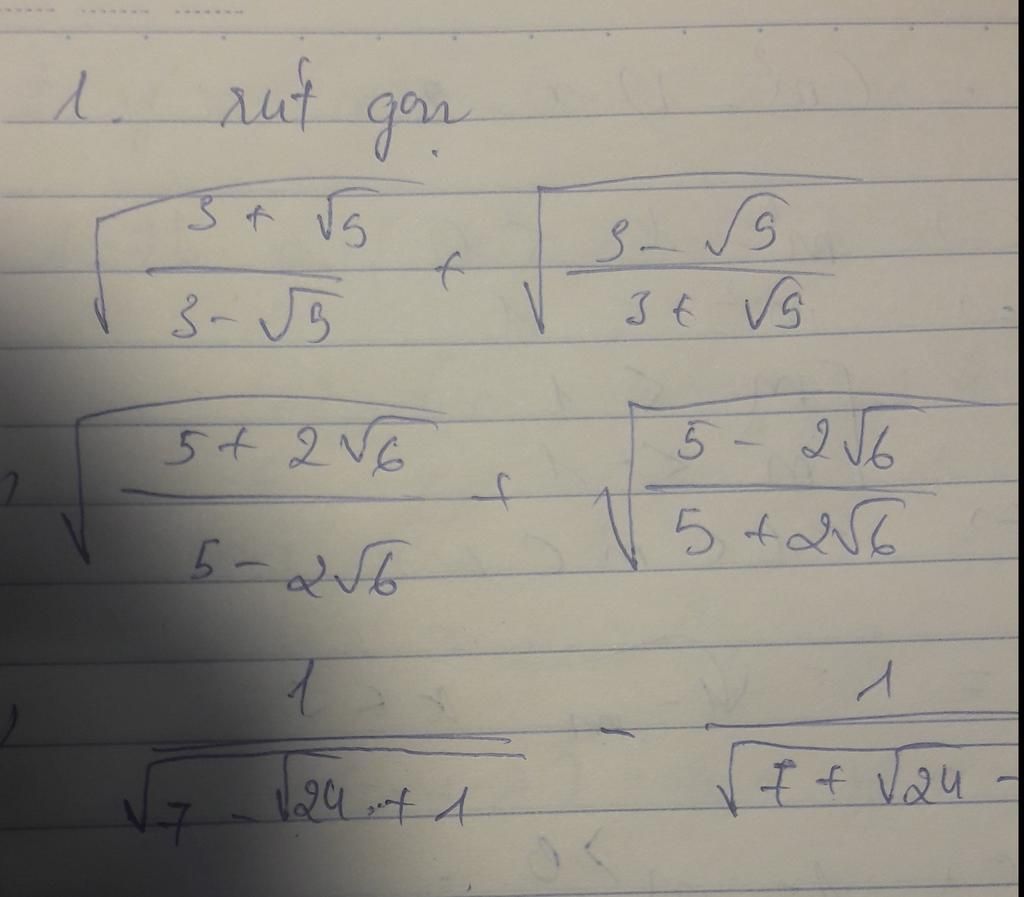 1. rút gọn
√((3 + √5)/(3 - √5)) + √((3 - √5)/(3 + √5))
) √((5 + 2√6)/(5 - 2√6)) + √((5 - 2√6)/(5 + 2√6))
) 1/√(7 - √24 + 1) - 1/√(7 + √24 -